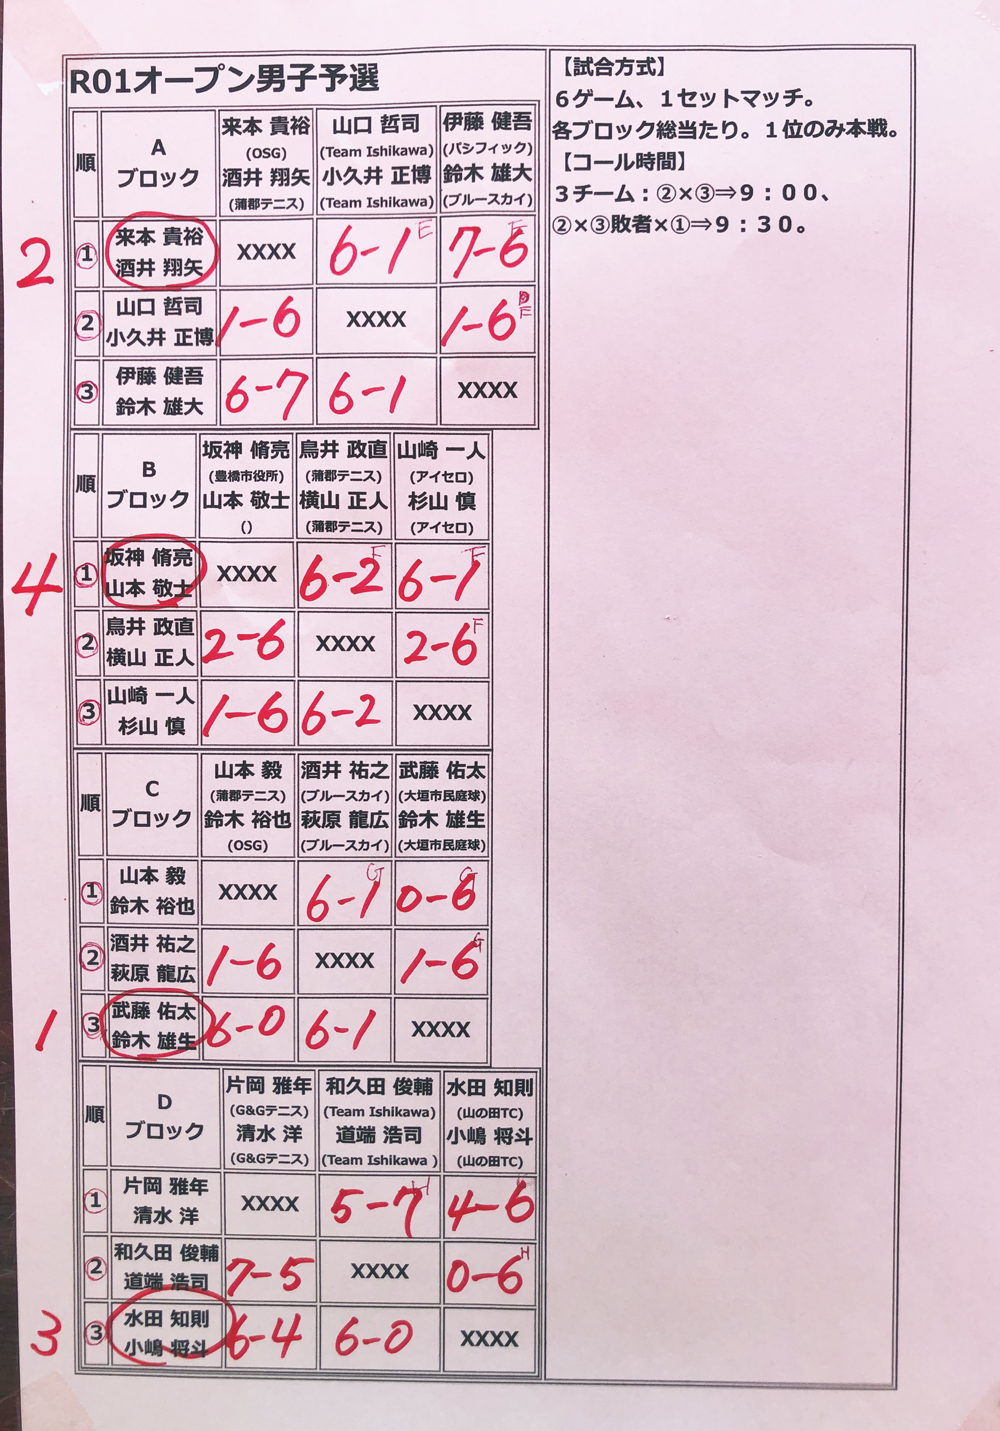 R01オープン男子予選
順 A ブロック 来本 貴裕 (OSG) 酒井 翔矢 (蒲郡テニス) 山口 哲司 (Team Ishikawa) 小久井 正博 (Team Ishikawa) 伊藤 健吾 (パシフィック) 鈴木 雄大 (ブルースカイ)
2 ① 来本 貴裕 酒井 翔矢 XXXX 6-1 E 7-6 F
② 山口 哲司 小久井 正博 1-6 XXXX 1-6 E
③ 伊藤 健吾 鈴木 雄大 6-7 6-1 XXXX
順 B ブロック 坂神 脩亮 (豊橋市役所) 山本 敬士 () 鳥井 政直 (蒲郡テニス) 横山 正人 (蒲郡テニス) 山崎 一人 (アイセロ) 杉山 慎 (アイセロ)
4 ① 坂神 脩亮 山本 敬士 XXXX 6-2 F 6-1 F
② 鳥井 政直 横山 正人 2-6 XXXX 2-6 F
③ 山崎 一人 杉山 慎 1-6 6-2 XXXX
順 C ブロック 山本 毅 (蒲郡テニス) 鈴木 裕也 (OSG) 酒井 祐之 (ブルースカイ) 萩原 龍広 (ブルースカイ) 武藤 佑太 (大垣市民庭球) 鈴木 雄生 (大垣市民庭球)
① 山本 毅 鈴木 裕也 XXXX 6-1 G 0-6 G
② 酒井 祐之 萩原 龍広 1-6 XXXX 1-6 G
1 ③ 武藤 佑太 鈴木 雄生 6-0 6-1 XXXX
順 D ブロック 片岡 雅年 (G&Gテニス) 清水 洋 (G&Gテニス) 和久田 俊輔 (Team Ishikawa) 道端 浩司 (Team Ishikawa ) 水田 知則 (山の田TC) 小嶋 将斗 (山の田TC)
① 片岡 雅年 清水 洋 XXXX 5-7 H 4-6
② 和久田 俊輔 道端 浩司 7-5 XXXX 0-6 H
3 ③ 水田 知則 小嶋 将斗 6-4 6-0 XXXX
【試合方式】
６ゲーム、１セットマッチ。
各ブロック総当たり。１位のみ本戦。
【コール時間】
３チーム：②×③⇒９：００、
②×③敗者×①⇒９：３０。